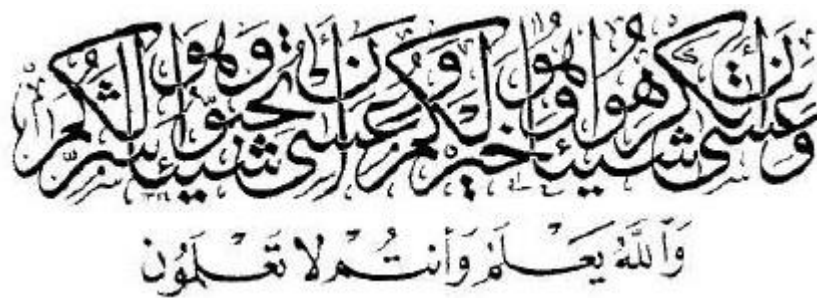 وَعَسَىٰ أَن تَكْرَهُوا شَيْئًا وَهُوَ خَيْرٌ لَّكُمْ وَعَسَىٰ أَن تُحِبُّوا شَيْئًا وَهُوَ شَرٌّ لَّكُمْ
وَٱللَّهُ يَعْلَمُ وَأَنتُمْ لَا تَعْلَمُونَ